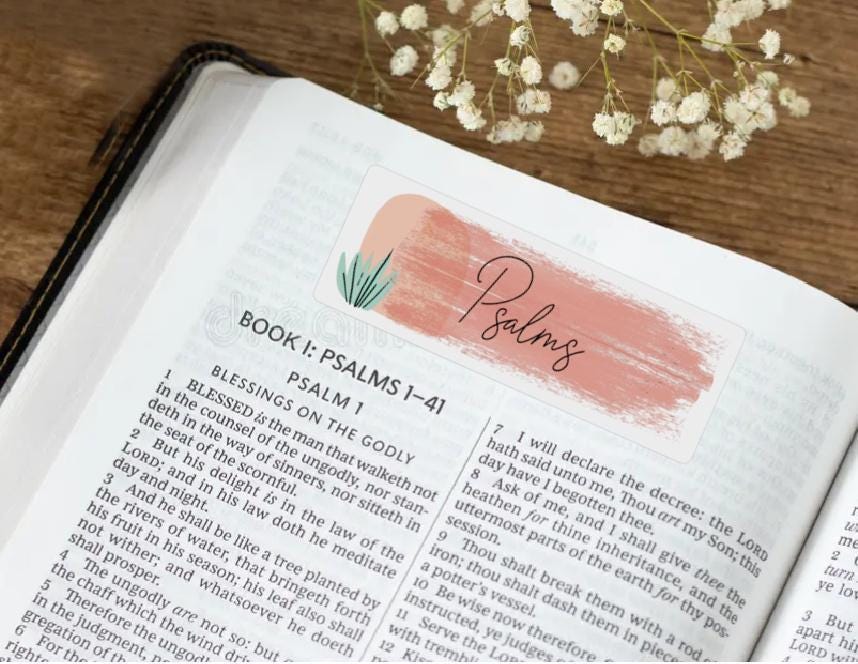 Psalms
BOOK I: PSALMS 1–41
PSALM 1
BLESSINGS ON THE GODLY
1 BLESSED is the man that walketh not
in the counsel of the ungodly, nor stan-
deth in the way of sinners, nor sitteth in
the seat of the scornful.
2 But his delight is in the law of the
LORD; and in his law doth he meditate
day and night.
3 And he shall be like a tree planted by
the rivers of water, that bringeth forth
his fruit in his season; his leaf also shall
not wither; and whatsoever he doeth
shall prosper.
4 The ungodly are not so: but
the chaff which the wind
5 Therefore the ungodly
in the judgment, no
gregation of the
6 For the
7 I will declare the decree: the LORD
hath said unto me, Thou art my Son; this
day have I begotten thee.
8 Ask of me, and I shall give thee the
heathen for thine inheritance, and the
uttermost parts of the earth for thy pos-
session.
9 Thou shalt break them with a rod
iron; thou shalt dash them in
a potter's vessel.
10 Be wise now therefore
instructed, ye judges
11 Serve the LORD
with
12
2
turn
ye lo
3
apart
LORD